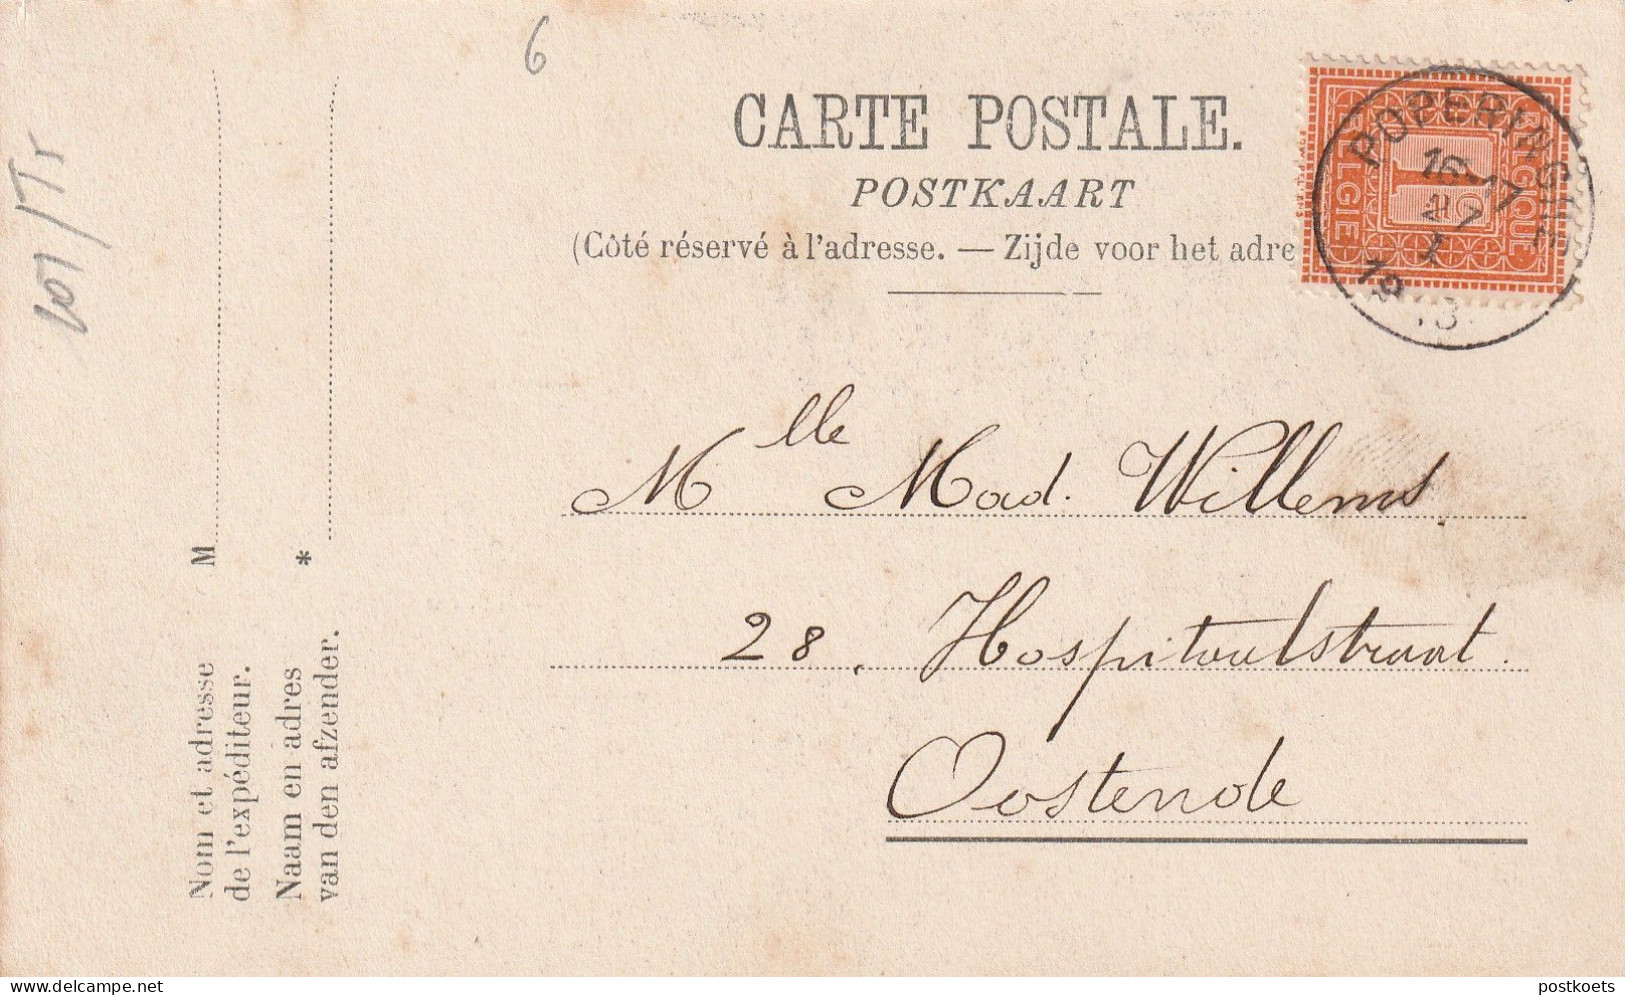 6
CARTE POSTALE.
POSTKAART
(Côté réservé à l'adresse. — Zijde voor het adre
BELGIQUE
BELGIË
1
POPERINGHE
16-17
27
I
19 13
Mlle Mad. Willems
28, Hospitaalstraat.
Oostende
M
*
Nom et adresse
de l'expéditeur.
Naam en adres
van den afzender.
delcampe.net
postkoets